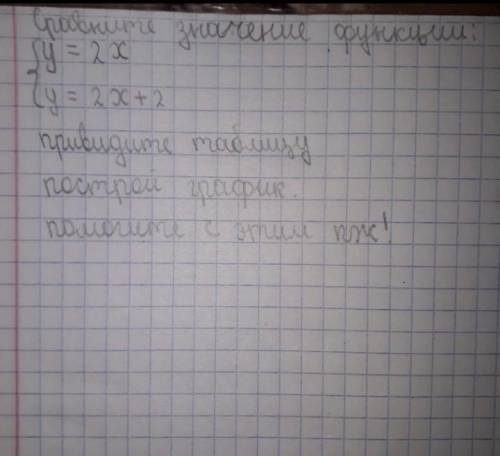 Сравните значение функции:
{y = 2x
{y = 2x+2
привидите таблицу
построй график.
помогите с этим пж!